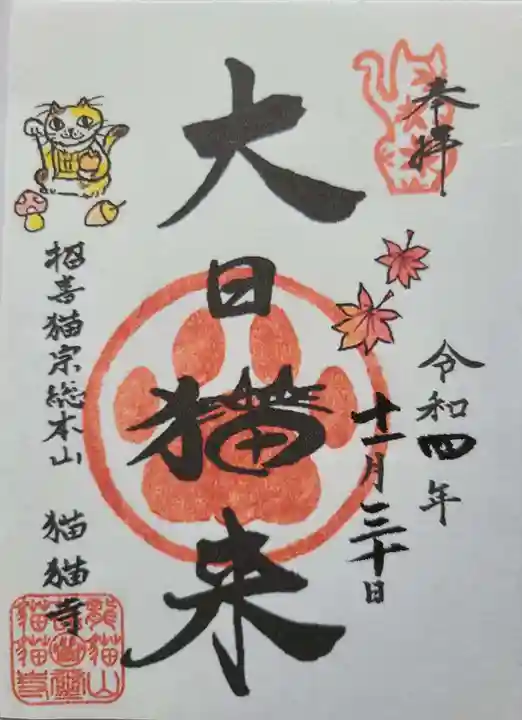 奉拝
令和四年
十一月三十日
大日猫来
招喜猫宗総本山 猫猫寺
龍猫山
猫猫寺